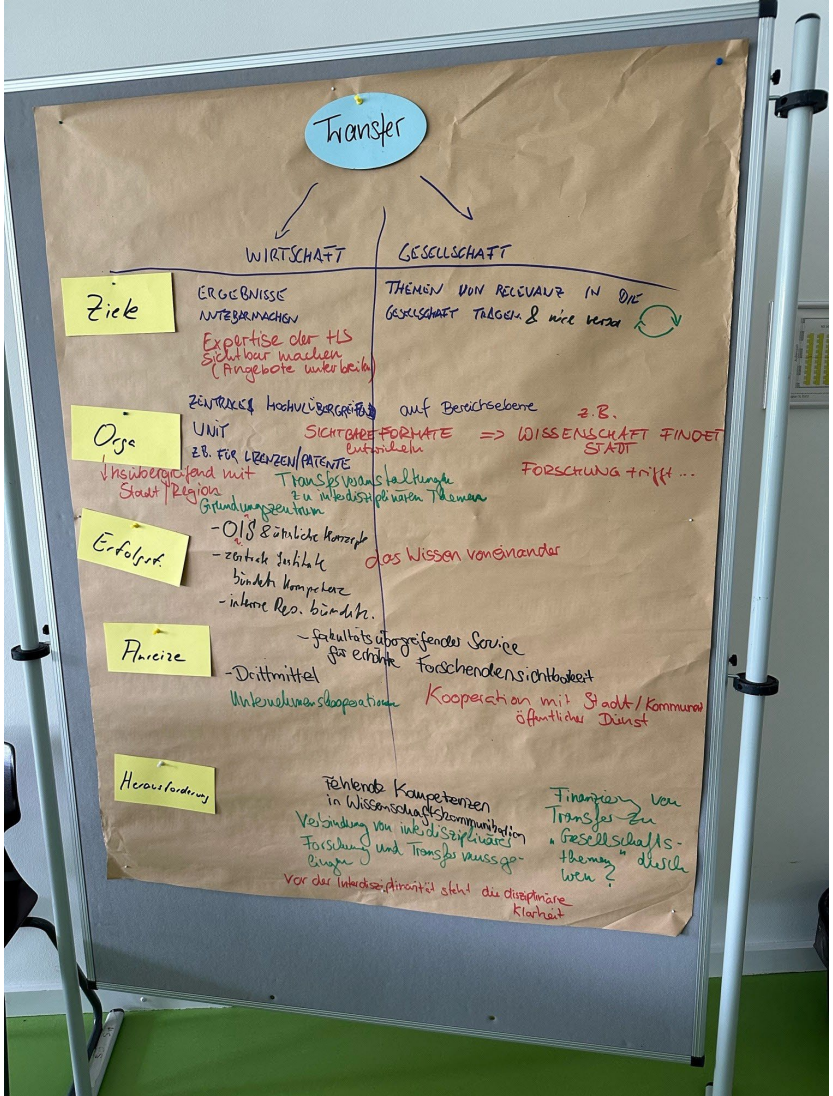 Transfer
WIRTSCHAFT
GESELLSCHAFT
Ziele
ERGEBNISSE
NUTZBARMACHEN
Expertise der HS
sichtbar machen
(Angebote unterbreiten)
THEMEN VON RELEVANZ IN DIE
GESELLSCHAFT TRAGEN & vice versa
Orga
ZENTRALE HOCHULÜBERGREIFEND
UNIT
Z.B. FÜR LIZENZEN/PATENTE
auf Bereichsebene
SICHTBARE FORMATE
entwickeln
=> WISSENSCHAFT FINDET
STADT
z.B.
FORSCHUNG trifft ...
Hsübergreifend mit
Stadt/Region
Transferveranstaltungen
zu interdisziplinären Themen
Gründungszentrum
Erfolgsf.
- OIS & ähnliche Konzepte
- zentrale Institute
bündeln Kompetenz
- interne Res. bündeln.
das Wissen voneinander
Anreize
- fakultätsübergreifender Service
für erhöhte Forschendensichtbarkeit
- Drittmittel
Unternehmenskooperationen
Kooperation mit Stadt/Kommunen
öffentlicher Dienst
Herausforderung
Fehlende Kompetenzen
in Wissenschaftskommunikation
Verbindung von interdisziplinärer
Forschung und Transfer muss ge-
lingen
Finanzierg von
Transfer zu
"Gesellschafts-
themen" durch
wen?
Vor der Interdisziplinarität steht die disziplinäre
Klarheit